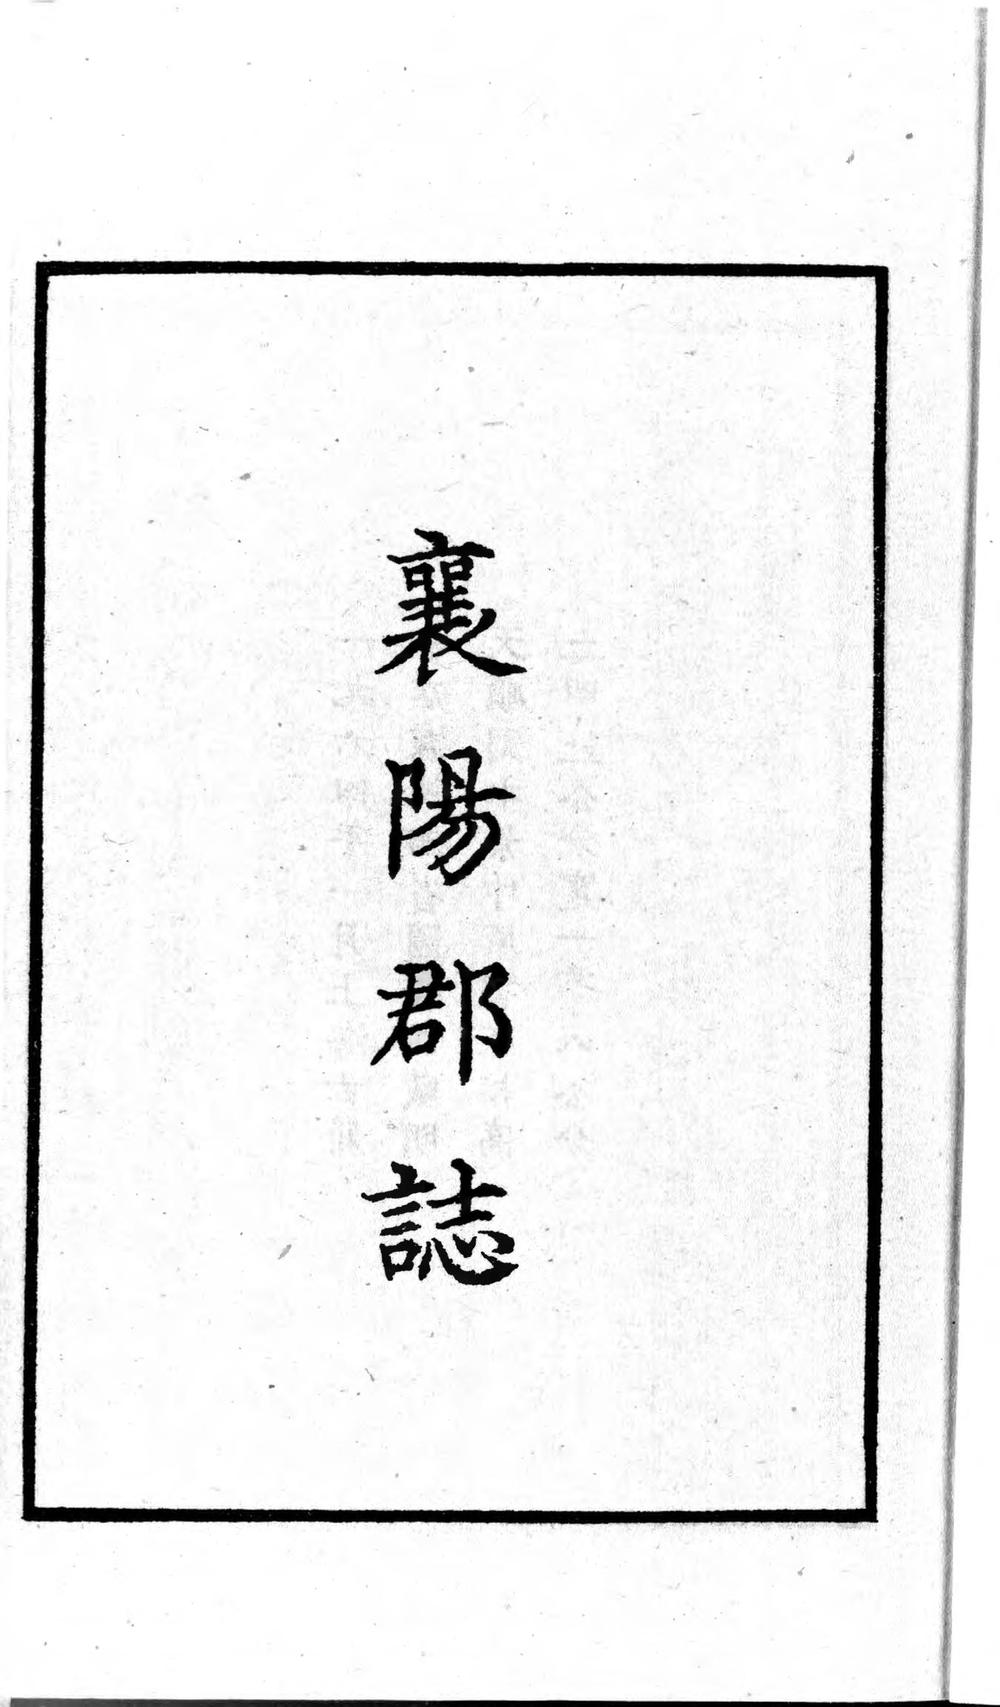 襄陽郡誌